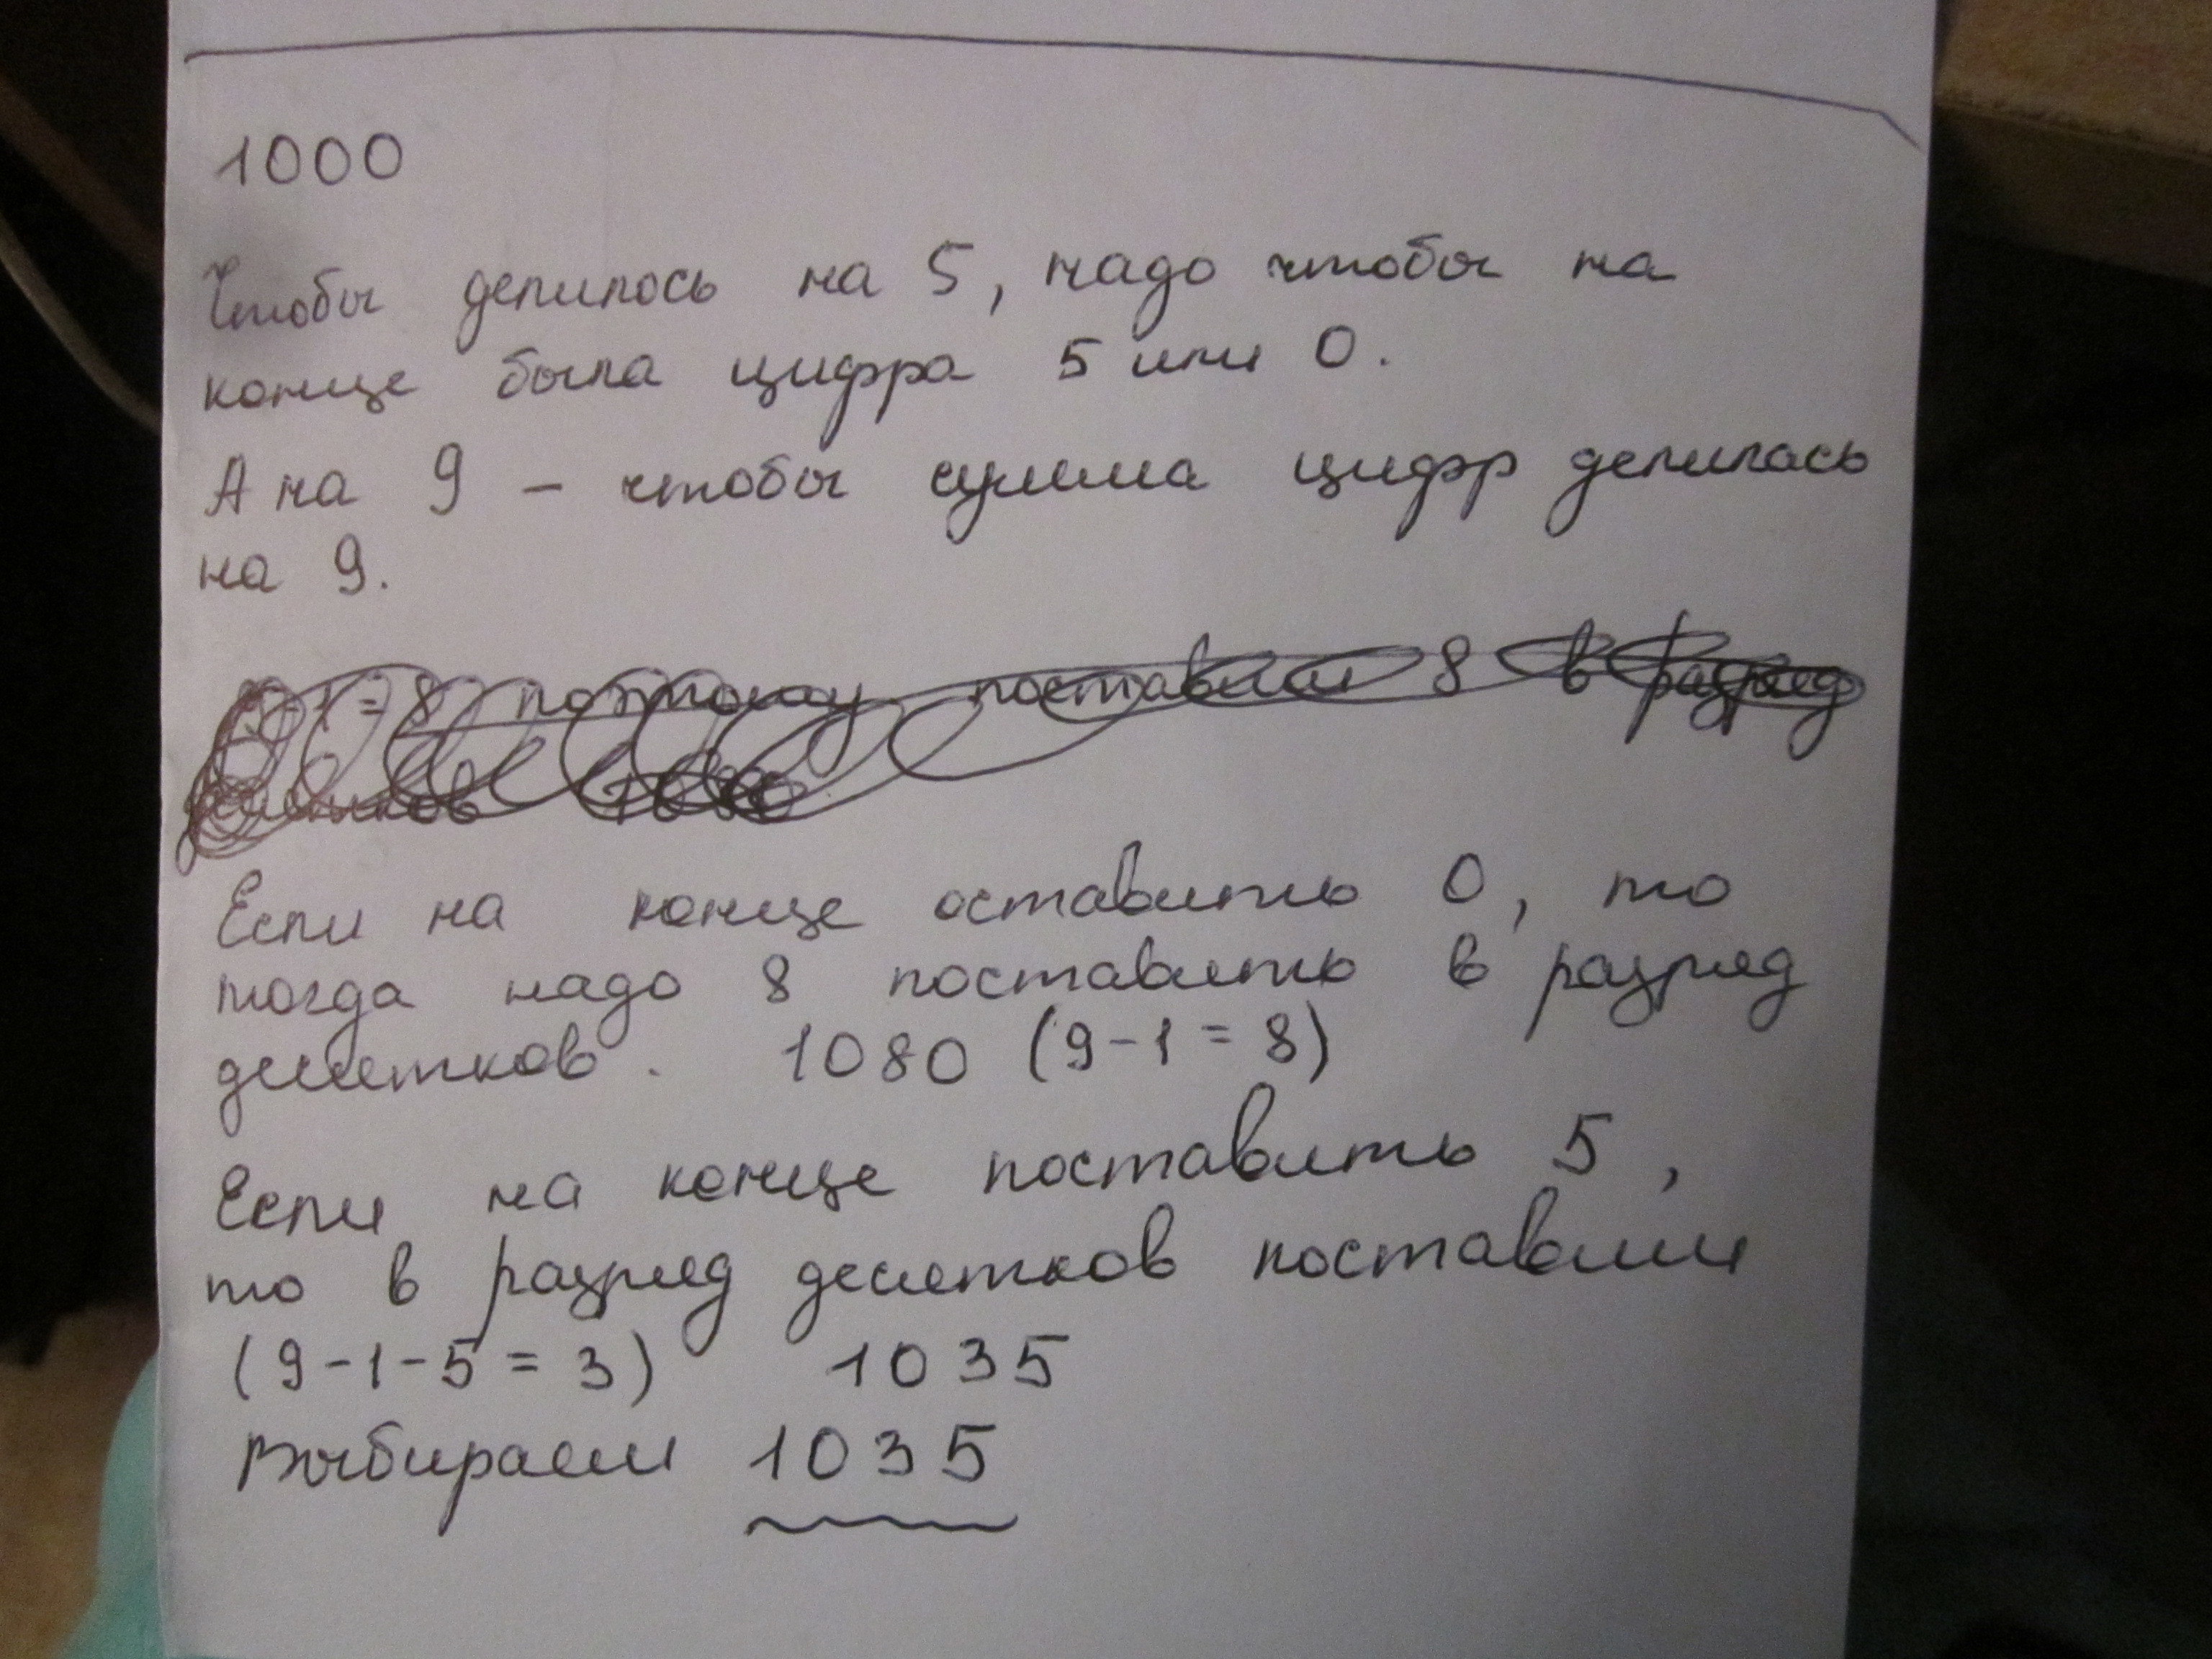 1000
Чтобы делилось на 5, надо чтобы на
конце была цифра 5 или 0.
А на 9 - чтобы сумма цифр делилась
на 9.
1 = 8 поэтому поставим 8 в разряд
десятков
Если на конце оставить 0, то
тогда надо 8 поставить в разряд
десятков. 1080 (9-1=8)
Если на конце поставить 5,
то в разряд десятков поставим
(9-1-5=3) 1035
Выбираем 1035